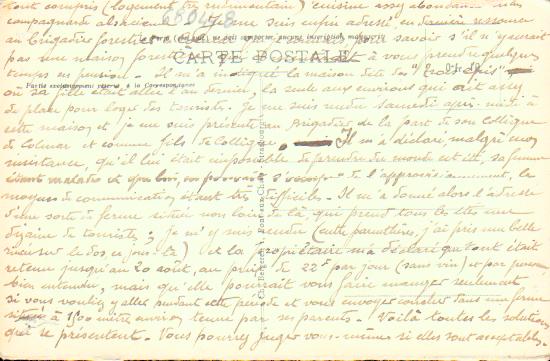 tout compris (logement très rudimentaire) cuisine assez abondante
compagnard alsacien. Je me suis enfin adressé en dernier ressort
au brigadier forestier pour savoir s'il n'y aurait
pas une maison forestière vous prendre quelques
CARTE POSTALE
temps en pension. Il m'a indiqué la maison dite des "Trois Epis"
Partie exclusivement réservée à la Correspondance
où sa fille était allée l'an dernier, la seule aux environs qui ait assez
de place pour loger des touristes. Je me suis rendu samedi après-midi à
cette maison et je me suis présenté au Brigadier de la part de son collègue
de Colmar et comme fils de collègue. Il m'a déclaré, malgré mon
insistance, qu'il lui était impossible de prendre du monde cet été, sa femme
étant malade et que lui, ne pouvait s'occuper de l'approvisionnement, les
moyens de communication étant très difficiles. Il m'a donné alors l'adresse
d'une sorte de ferme située non loin de là, qui prend tous les étés une
dizaine de touristes; je m'y suis rendu (entre parenthèses, j'ai pris une belle
suée sur le dos, ce jour-là) et la propriétaire m'a déclaré que tout était
retenu jusqu'au 20 août, au prix de 22f par jour (sans vin) et par personne
bien entendu, mais qu'elle pourrait vous faire manger seulement
si vous vouliez y aller pendant cette période et vous envoyer coucher dans une ferme
à 1500 mètres environ tenue par ses parents. Voilà toutes les solutions
qui se présentent. Vous pourrez juger vous-mêmes si elles sont acceptables.